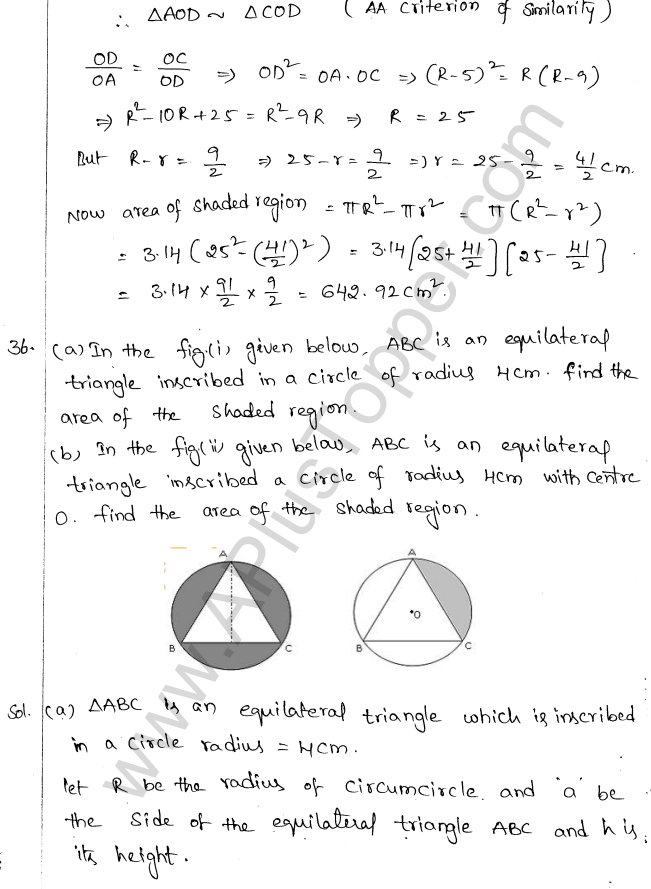 ∴ △AOD ~ △COD ( AA Criterion of Similarity )
OD/OA = OC/OD ⇒ OD² = OA·OC ⇒ (R-5)² = R(R-9)
⇒ R²-10R+25 = R²-9R ⇒ R = 25
But R-r = 9/2 ⇒ 25-r = 9/2 ⇒ r = 25-9/2 = 41/2 cm.
Now area of shaded region = πR²-πr² = π(R²-r²)
= 3.14(25²-(41/2)²) = 3.14[25+41/2][25-41/2]
= 3.14 × 91/2 × 9/2 = 642.92cm².
36. (a) In the fig.(i) given below, ABC is an equilateral
triangle inscribed in a circle of radius 4cm. find the
area of the shaded region.
(b) In the fig(ii) given below, ABC is an equilateral
triangle inscribed a circle of radius 4cm with centre
O. find the area of the shaded region.
A A
O
B C B C
Sol. (a) △ABC is an equilateral triangle which is inscribed
in a circle radius = 4cm.
let R be the radius of circumcircle and 'a' be
the side of the equilateral triangle ABC and h is
its height.
www.APlusTopper.com